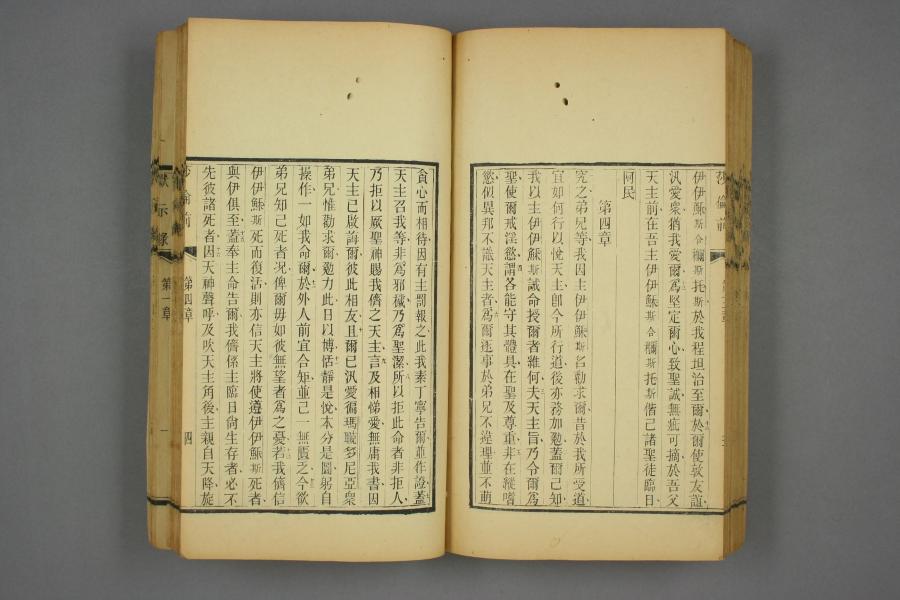 伊伊穌斯合穪斯托斯於我程坦治至爾於爾使敦友誼
汎愛衆猶我愛爾爲堅定爾心致聖誡無疵可摘於吾父
天主前在吾主伊伊穌斯合穪斯托斯偕己諸聖徒臨日
阿民
第四章
究之弟兄等我因主伊伊穌斯名勸求爾昔於我所受道
宜如何行以悅天主卽今所行道後亦務加勉蓋爾己知
我以主伊伊穌斯誡命授爾者維何夫天主旨乃令爾爲
聖使爾戒淫慾謂各能守其體具在聖及尊重非在縱嗜
慾似異邦不識天主者爲爾逛事於弟兄不違理並不萌
貪心而相待因有主罰報之此我素丁寧告爾並作證蓋
天主召我等非爲邪穢乃爲聖潔所以拒此命者非拒人
乃拒以厥聖神賜我儕之天主言及相悌愛無庸我書因
天主已啟誨爾彼此相友且爾已汎愛徧瑪曘多尼亞衆
弟兄惟勸求爾勉力此日以博恬靜是悅本分是圖躬自
操作一如我命爾於外人前宜合矩並己一無匱之今欲
弟兄知已死者况俾爾毋如彼無望者爲之憂若我儕信
伊伊穌斯死而復活則亦信天主將使遵伊伊穌斯死者
與伊俱至蓋奉主命告爾我儕係主臨日尙生存者必不
先彼諸死者因天神聲呼及吹天主角後主親自天降旋
莎倫前
第四章
四
默示錄
第一章
一